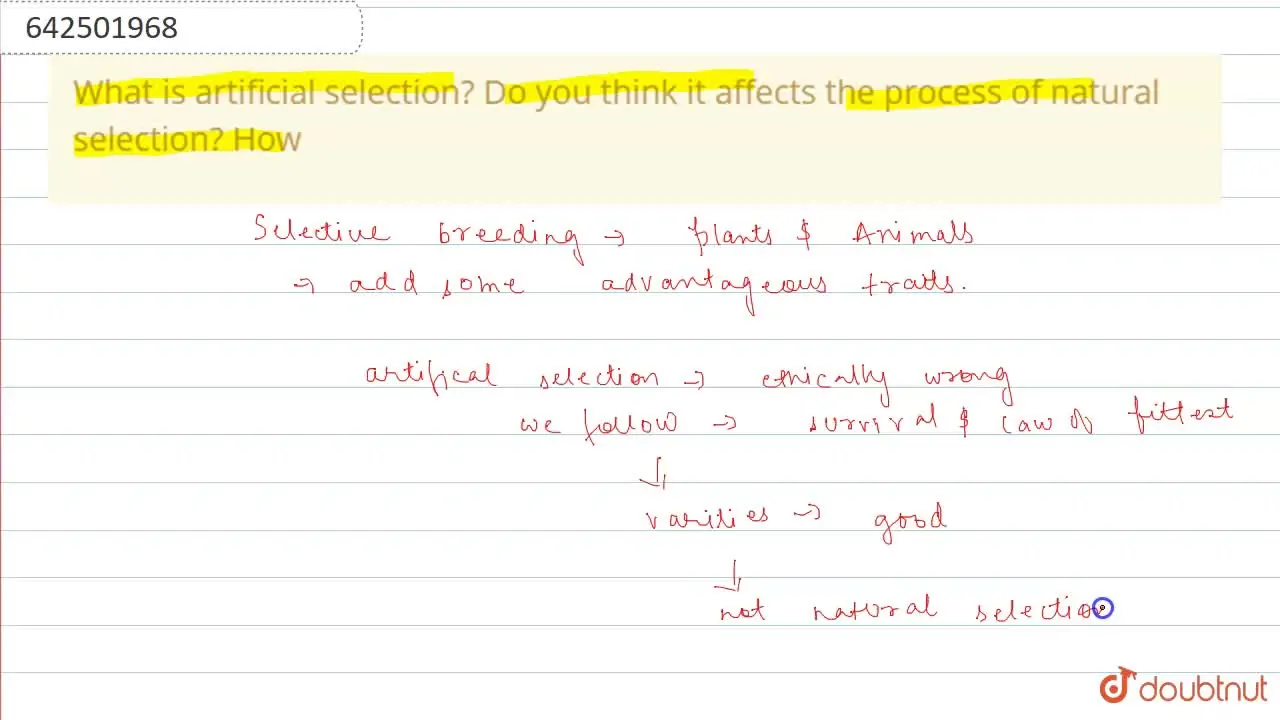 642501968
What is artificial selection? Do you think it affects the process of natural
selection? How
Selective breeding → plants & Animals
→ add some advantageous traits.
artifical selection → ethically wrong
we follow → survival & law of fittest
↓
varities → good
↓
not natural selection
doubtnut